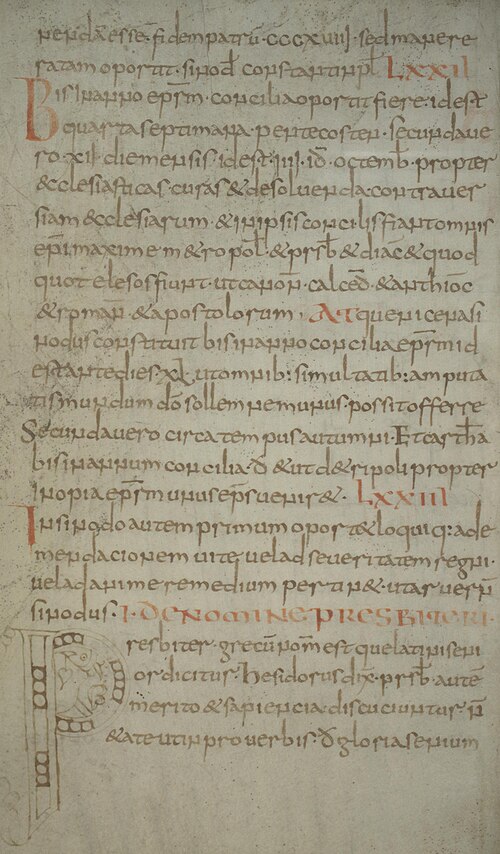 nenda esse · fidem patrū · cccxviii · sed manere
ratam oportit · sinod constantinpl LXXII
Bis in anno epsm · concilia oportit fiere · id est
quarta septimana · pentecosten · secunda ue
ro · xii · die mensis · id est · iiij · id octemb · propter
ecclesiasticas curas & desoluenda contrauer
siam ecclesiarum · & in ipsis concilis fiant omnis
epi maxime m&ropol & prsb & diac & quod
quot eles os fiunt · ut canon calced · & anthioc
& roman & apostolorum · AT queni cena si
nodus constituit bis in anno concilia epsm id
est ante dies xl ut omnib: simultatib: amputa
tis mundum dō sollemne munus · possit offerre
Secunda uero circa tempus autumni · Et cartha
bis in annum concilia · d & ut d& sinoli propter
inopia epsm unus eps uenir& · LXXIII
In sinodo autem primum oport& loqui q: ad e
mendacionem uite uel ad seueritatem regni ·
uel ad anime remedium pertin& · ut aruern
sinodus · I · DE NOMINE PRESBITERI ·
Presbiter · grecū nom est que latini seni
or dicitur · Hesidorus dix · prsb · autē
merito & sapiencia discuciuntur n̄
& ate ut in prouerbis · d gloria senum